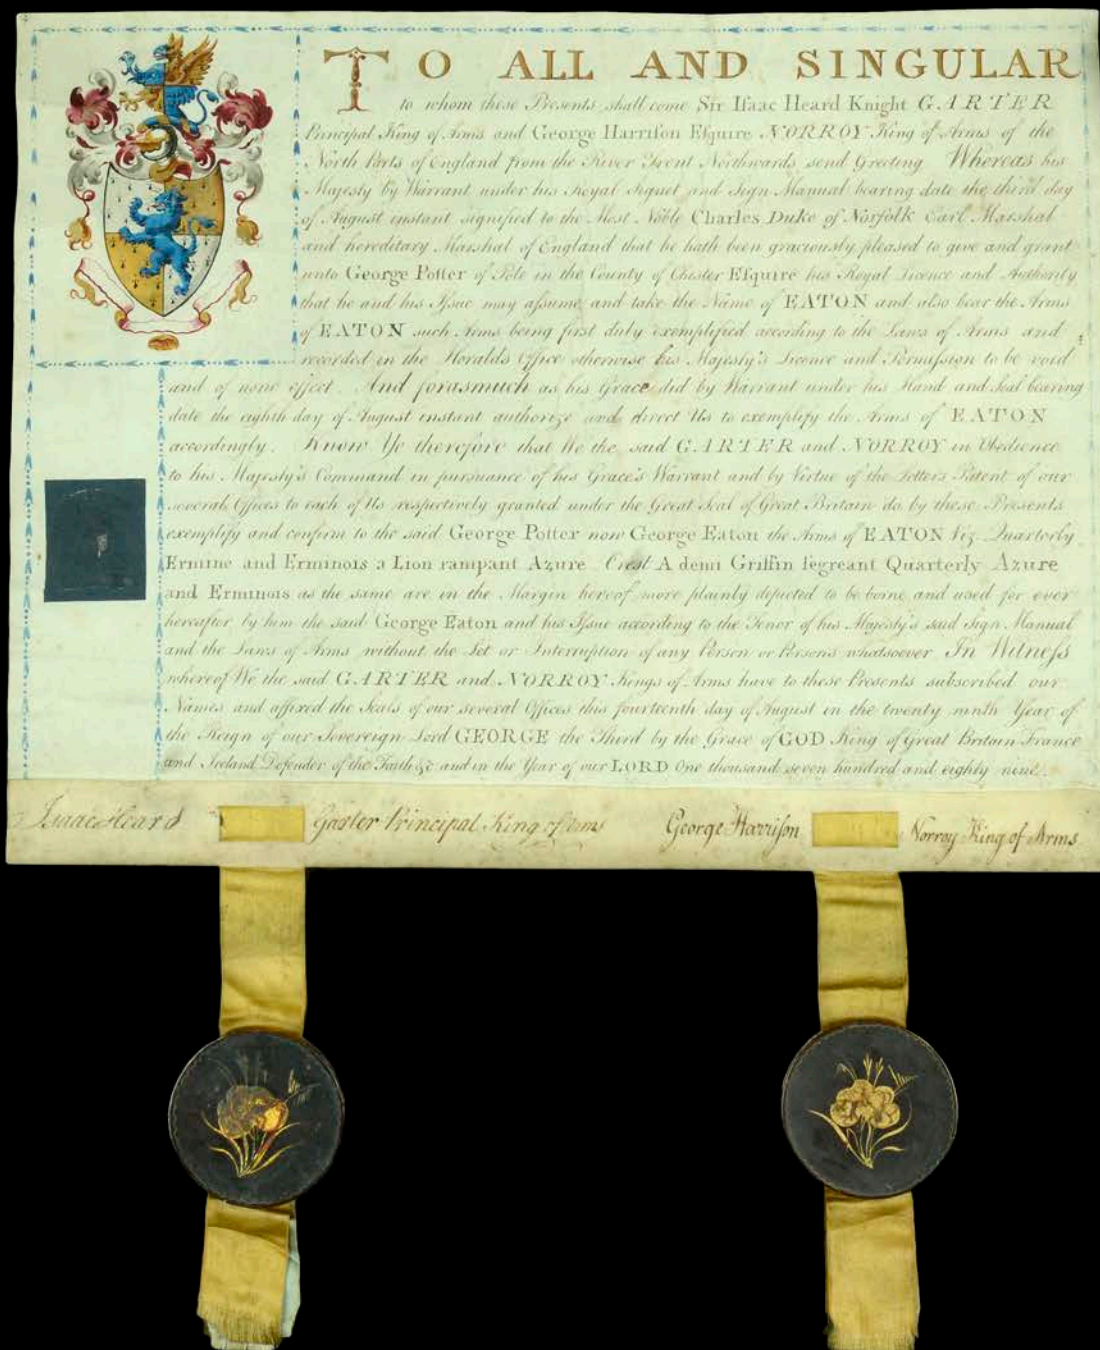 TO ALL AND SINGULAR
to whom these Presents shall come Sir Iſaac Heard Knight GARTER
Principal King of Arms and George Harriſon Eſquire NORROY King of Arms of the
North Parts of England from the River Trent Northwards send Greeting Whereas his
Majesty by Warrant under his Royal Signet and Sign Manual bearing date the third day
of August instant signified to the Most Noble Charles Duke of Norfolk Earl Marshal
and hereditary Marshal of England that he hath been graciously pleased to give and grant
unto George Potter of Pole in the County of Chester Eſquire his Royal Licence and Authority
that he and his Iſsue may aſsume and take the Name of EATON and also bear the Arms
of EATON such Arms being first duly exemplified according to the Laws of Arms and
recorded in the Heralds Office otherwise his Majesty's Licence and Permiſsion to be void
and of none effect. And forasmuch as his Grace did by Warrant under his Hand and Seal bearing
date the eighth day of August instant authorize and direct Us to exemplify the Arms of EATON
accordingly. Know Ye therefore that We the said GARTER and NORROY in Obedience
to his Majesty's Command in pursuance of his Grace's Warrant and by Virtue of the Letters Patent of our
several Offices to each of Us respectively granted under the Great Seal of Great Britain do by these Presents
exemplify and confirm to the said George Potter now George Eaton the Arms of EATON Viz. Quarterly
Ermine and Erminois a Lion rampant Azure Crest A demi Griffin ſegreant Quarterly Azure
and Erminois as the same are in the Margin hereof more plainly depicted to be borne and used for ever
hereafter by him the said George Eaton and his Iſsue according to the Tenor of his Majesty's said Sign Manual
and the Laws of Arms without the Let or Interruption of any Person or Persons whatsoever In Witneſs
whereof We the said GARTER and NORROY Kings of Arms have to these Presents subscribed our
Names and affixed the Seals of our several Offices this fourteenth day of August in the twenty ninth Year of
the Reign of our Sovereign Lord GEORGE the Third by the Grace of GOD King of Great Britain France
and Ireland Defender of the Faith &c and in the Year of our LORD One thousand seven hundred and eighty nine.
Isaac Heard Garter Principal King of Arms George Harriſon Norroy King of Arms